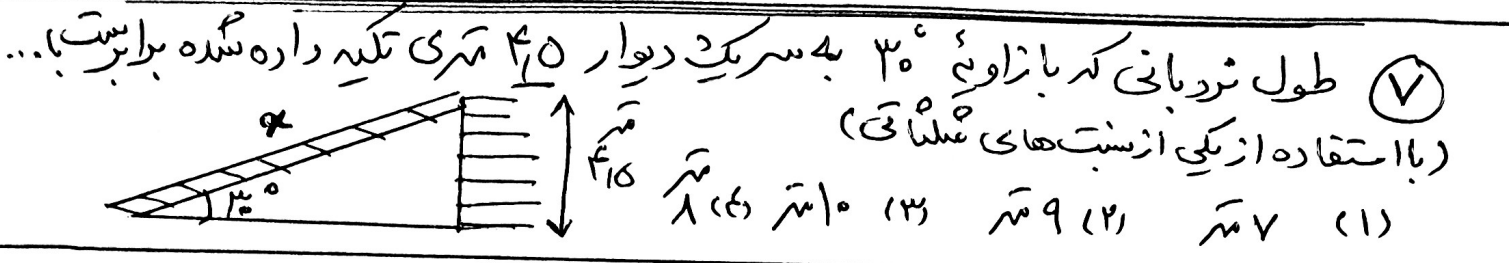 ۷ طول نردبانی که با زاویهٔ ۳۰° به سر یک دیوار ۴٫۵ متری تکیه داده شده برابرست با...
(با استفاده از یکی از نسبت‌های مثلثاتی)
x
۳۰°
۴٫۵ متر
(۱) ۷ متر (۲) ۹ متر (۳) ۱۰ متر (۴) ۸ متر